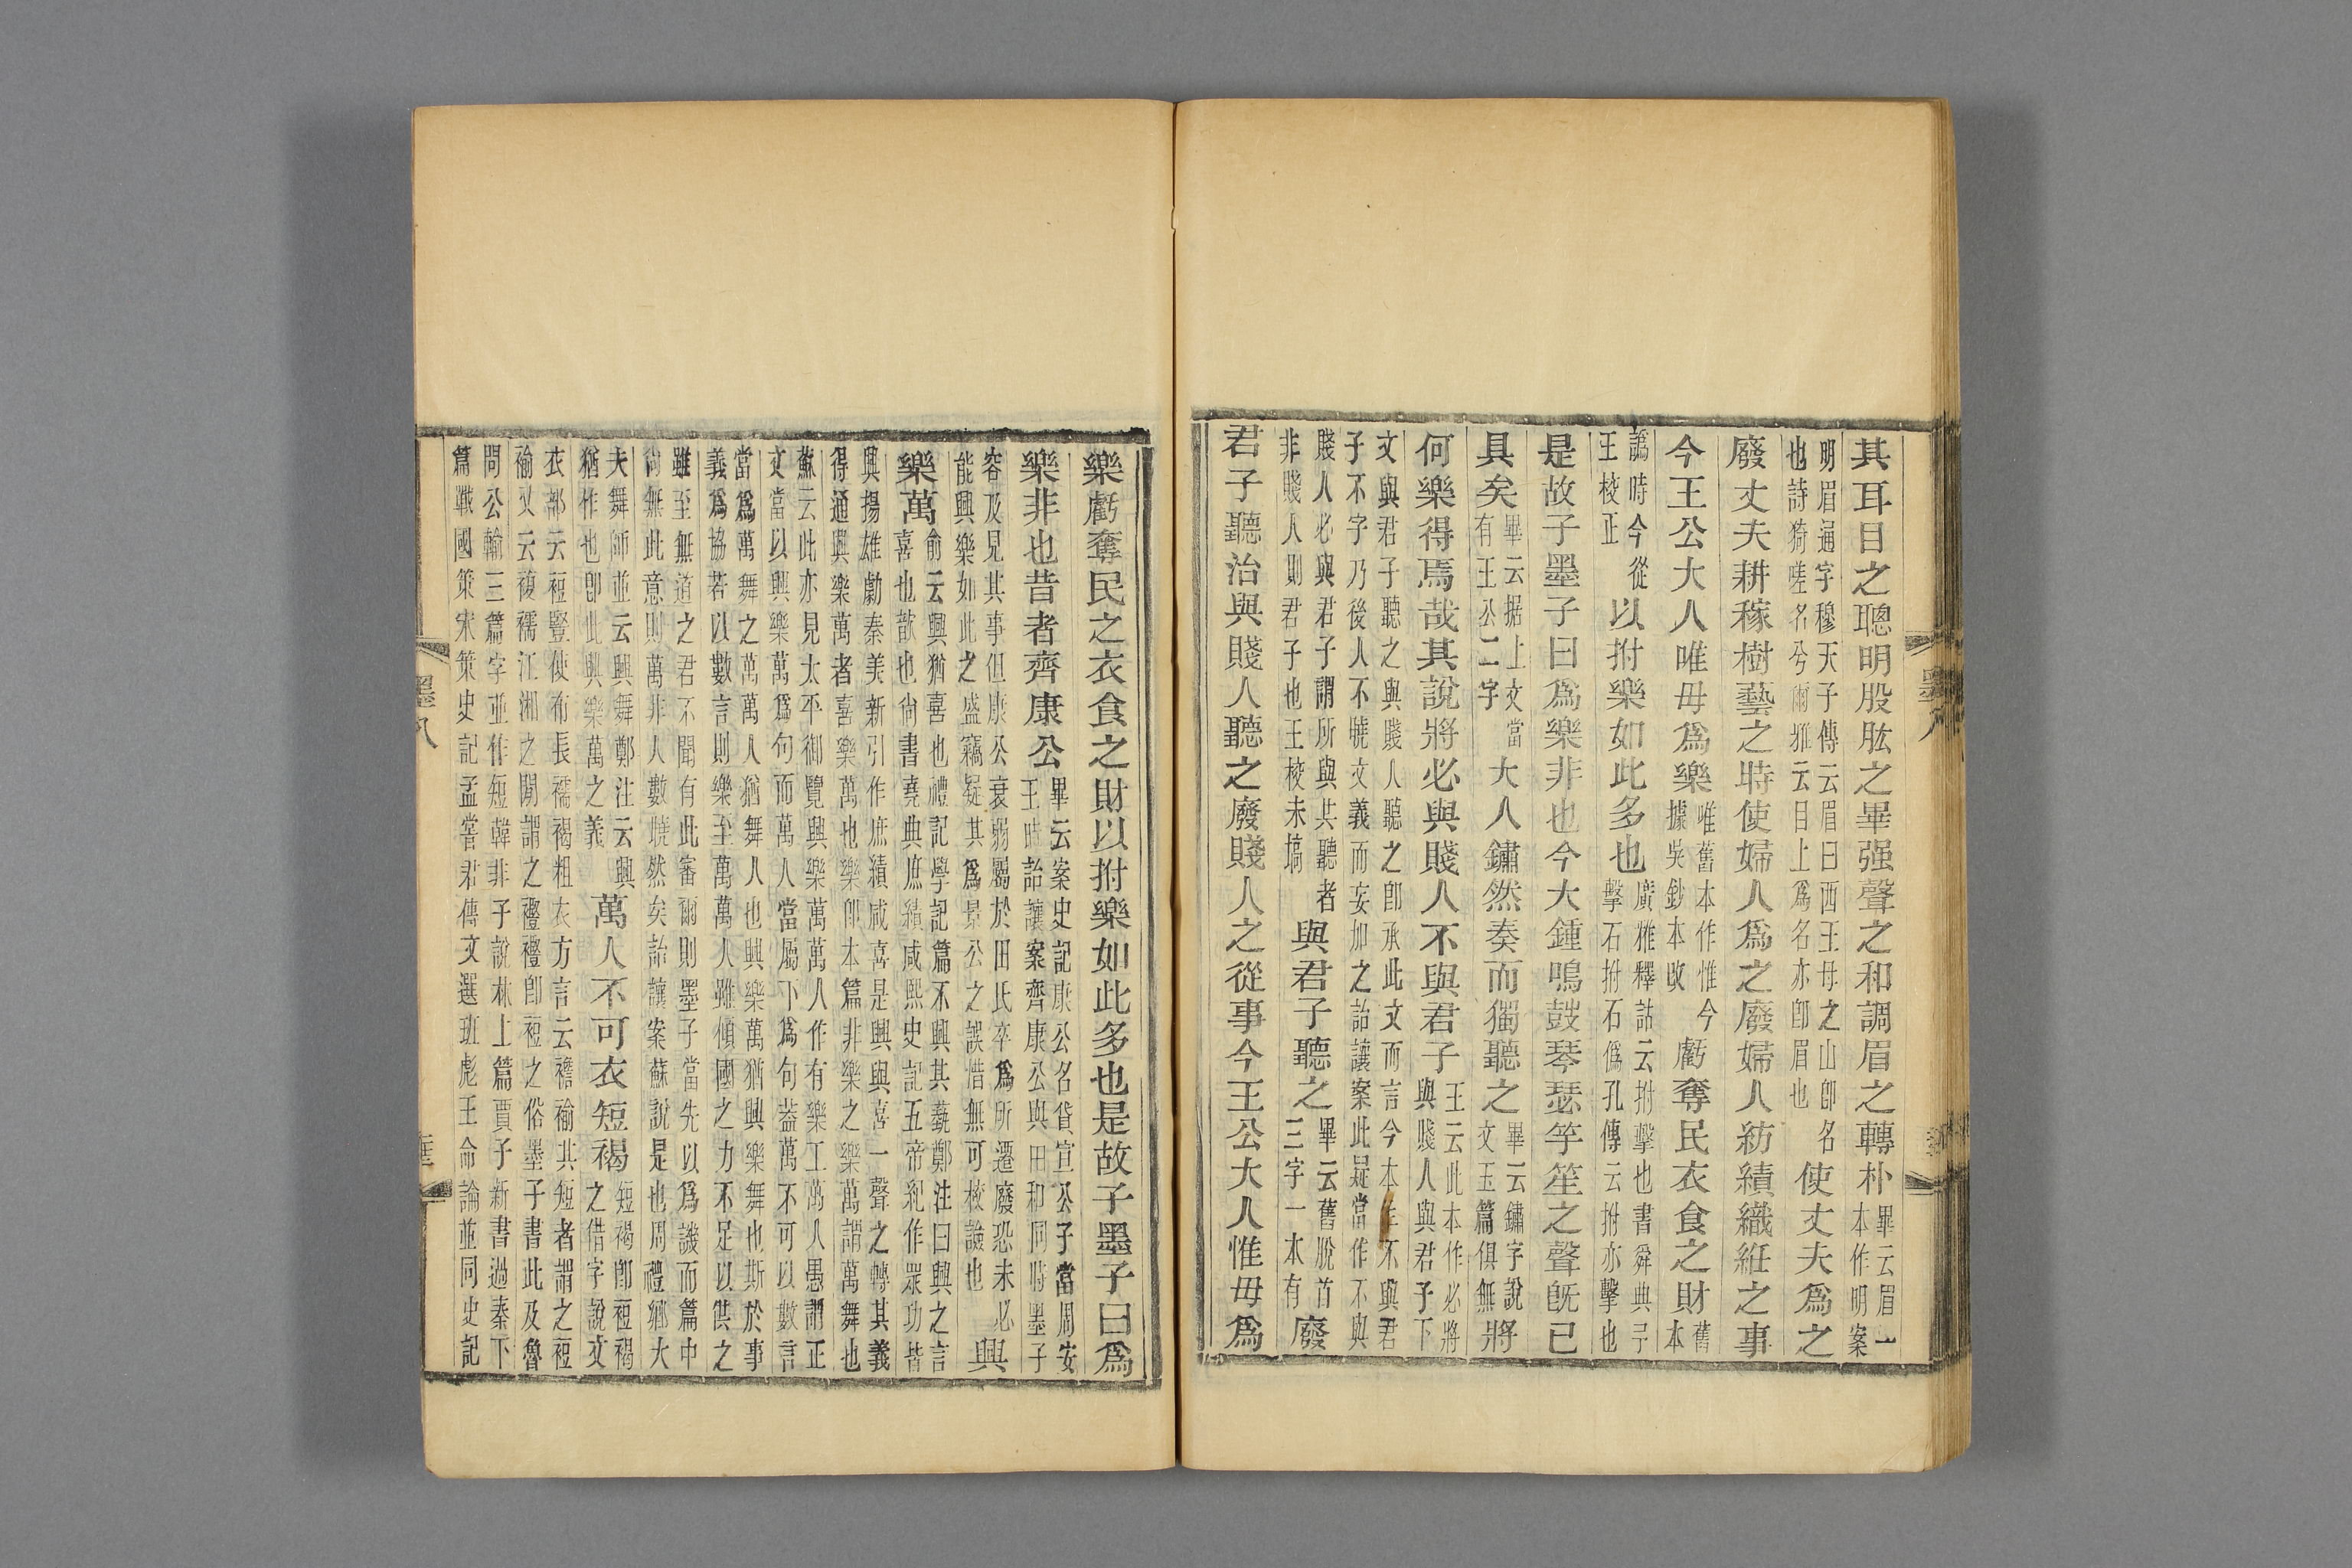 其耳目之聰明股肱之畢强聲之和調眉之轉朴畢云眉一本作明案
明眉通字穆天子傳云眉曰西王母之山卽名也詩猗嗟名兮爾雅云目上爲名亦卽眉也使丈夫爲之
廢丈夫耕稼樹藝之時使婦人爲之廢婦人紡績織紝之事
今王公大人唯毋爲樂唯舊本作惟今據吳鈔本改虧奪民衣食之財舊本
譌時今從王校正以拊樂如此多也廣雅釋詁云拊擊也書舜典予擊石拊石僞孔傳云拊亦擊也
是故子墨子曰爲樂非也今大鍾鳴鼓琴瑟竽笙之聲旣已
具矣畢云据上文當有王公二字大人鏽然奏而獨聽之畢云鏽字說文玉篇俱無將
何樂得焉哉其說將必與賤人不與君子王云此本作必將與賤人與君子下
文與君子聽之與賤人聽之卽承此文而言今本作不與君子不字乃後人不曉文義而妄加之詒讓案此疑當作不與
賤人必與君子謂所與共聽者非賤人則君子也王校未塙與君子聽之畢云舊脫首三字一本有廢
君子聽治與賤人聽之廢賤人之從事今王公大人惟毋爲
墨八
樂虧奪民之衣食之財以拊樂如此多也是故子墨子曰爲
樂非也昔者齊康公畢云案史記康公名貸宣公子當周安王時詒讓案齊康公與田和同時墨子
容及見其事但康公衰弱屬於田氏卒爲所遷廢恐未必能興樂如此之盛竊疑其爲景公之誤惜無可校譣也興
樂萬俞云興猶喜也禮記學記篇不興其蓺鄭注曰興之言喜也歆也尙書堯典庶績咸熙史記五帝紀作眾功皆
興揚雄勮秦美新引作庶績咸喜是興與喜一聲之轉其義得通興樂萬者喜樂萬也樂卽本篇非樂之樂萬謂萬舞也
蘇云此亦見太平御覽興樂萬萬人作有樂工萬人愚謂正文當以興樂萬爲句而萬人當屬下爲句葢萬不可以數言
當爲萬舞之萬萬人猶舞人也興樂萬猶興樂舞也斯於事義爲協若以數言則樂至萬萬人雖傾國之力不足以供之
雖至無道之君不聞有此審爾則墨子當先以爲譏而篇中尙無此意則萬非人數曉然矣詒讓案蘇說是也周禮鄉大
夫舞師並云興舞鄭注云興猶作也卽此興樂萬之義萬人不可衣短褐短褐卽裋褐之借字說文
衣部云裋豎使布長襦褐粗衣方言云襜褕其短者謂之裋褕又云複襦江湘之閒謂之𧞫𧞫卽裋之俗墨子書此及魯
問公輸三篇字並作短韓非子說林上篇賈子新書過秦下篇戰國策宋策史記孟嘗君傳文選班彪王命論並同史記
墨八